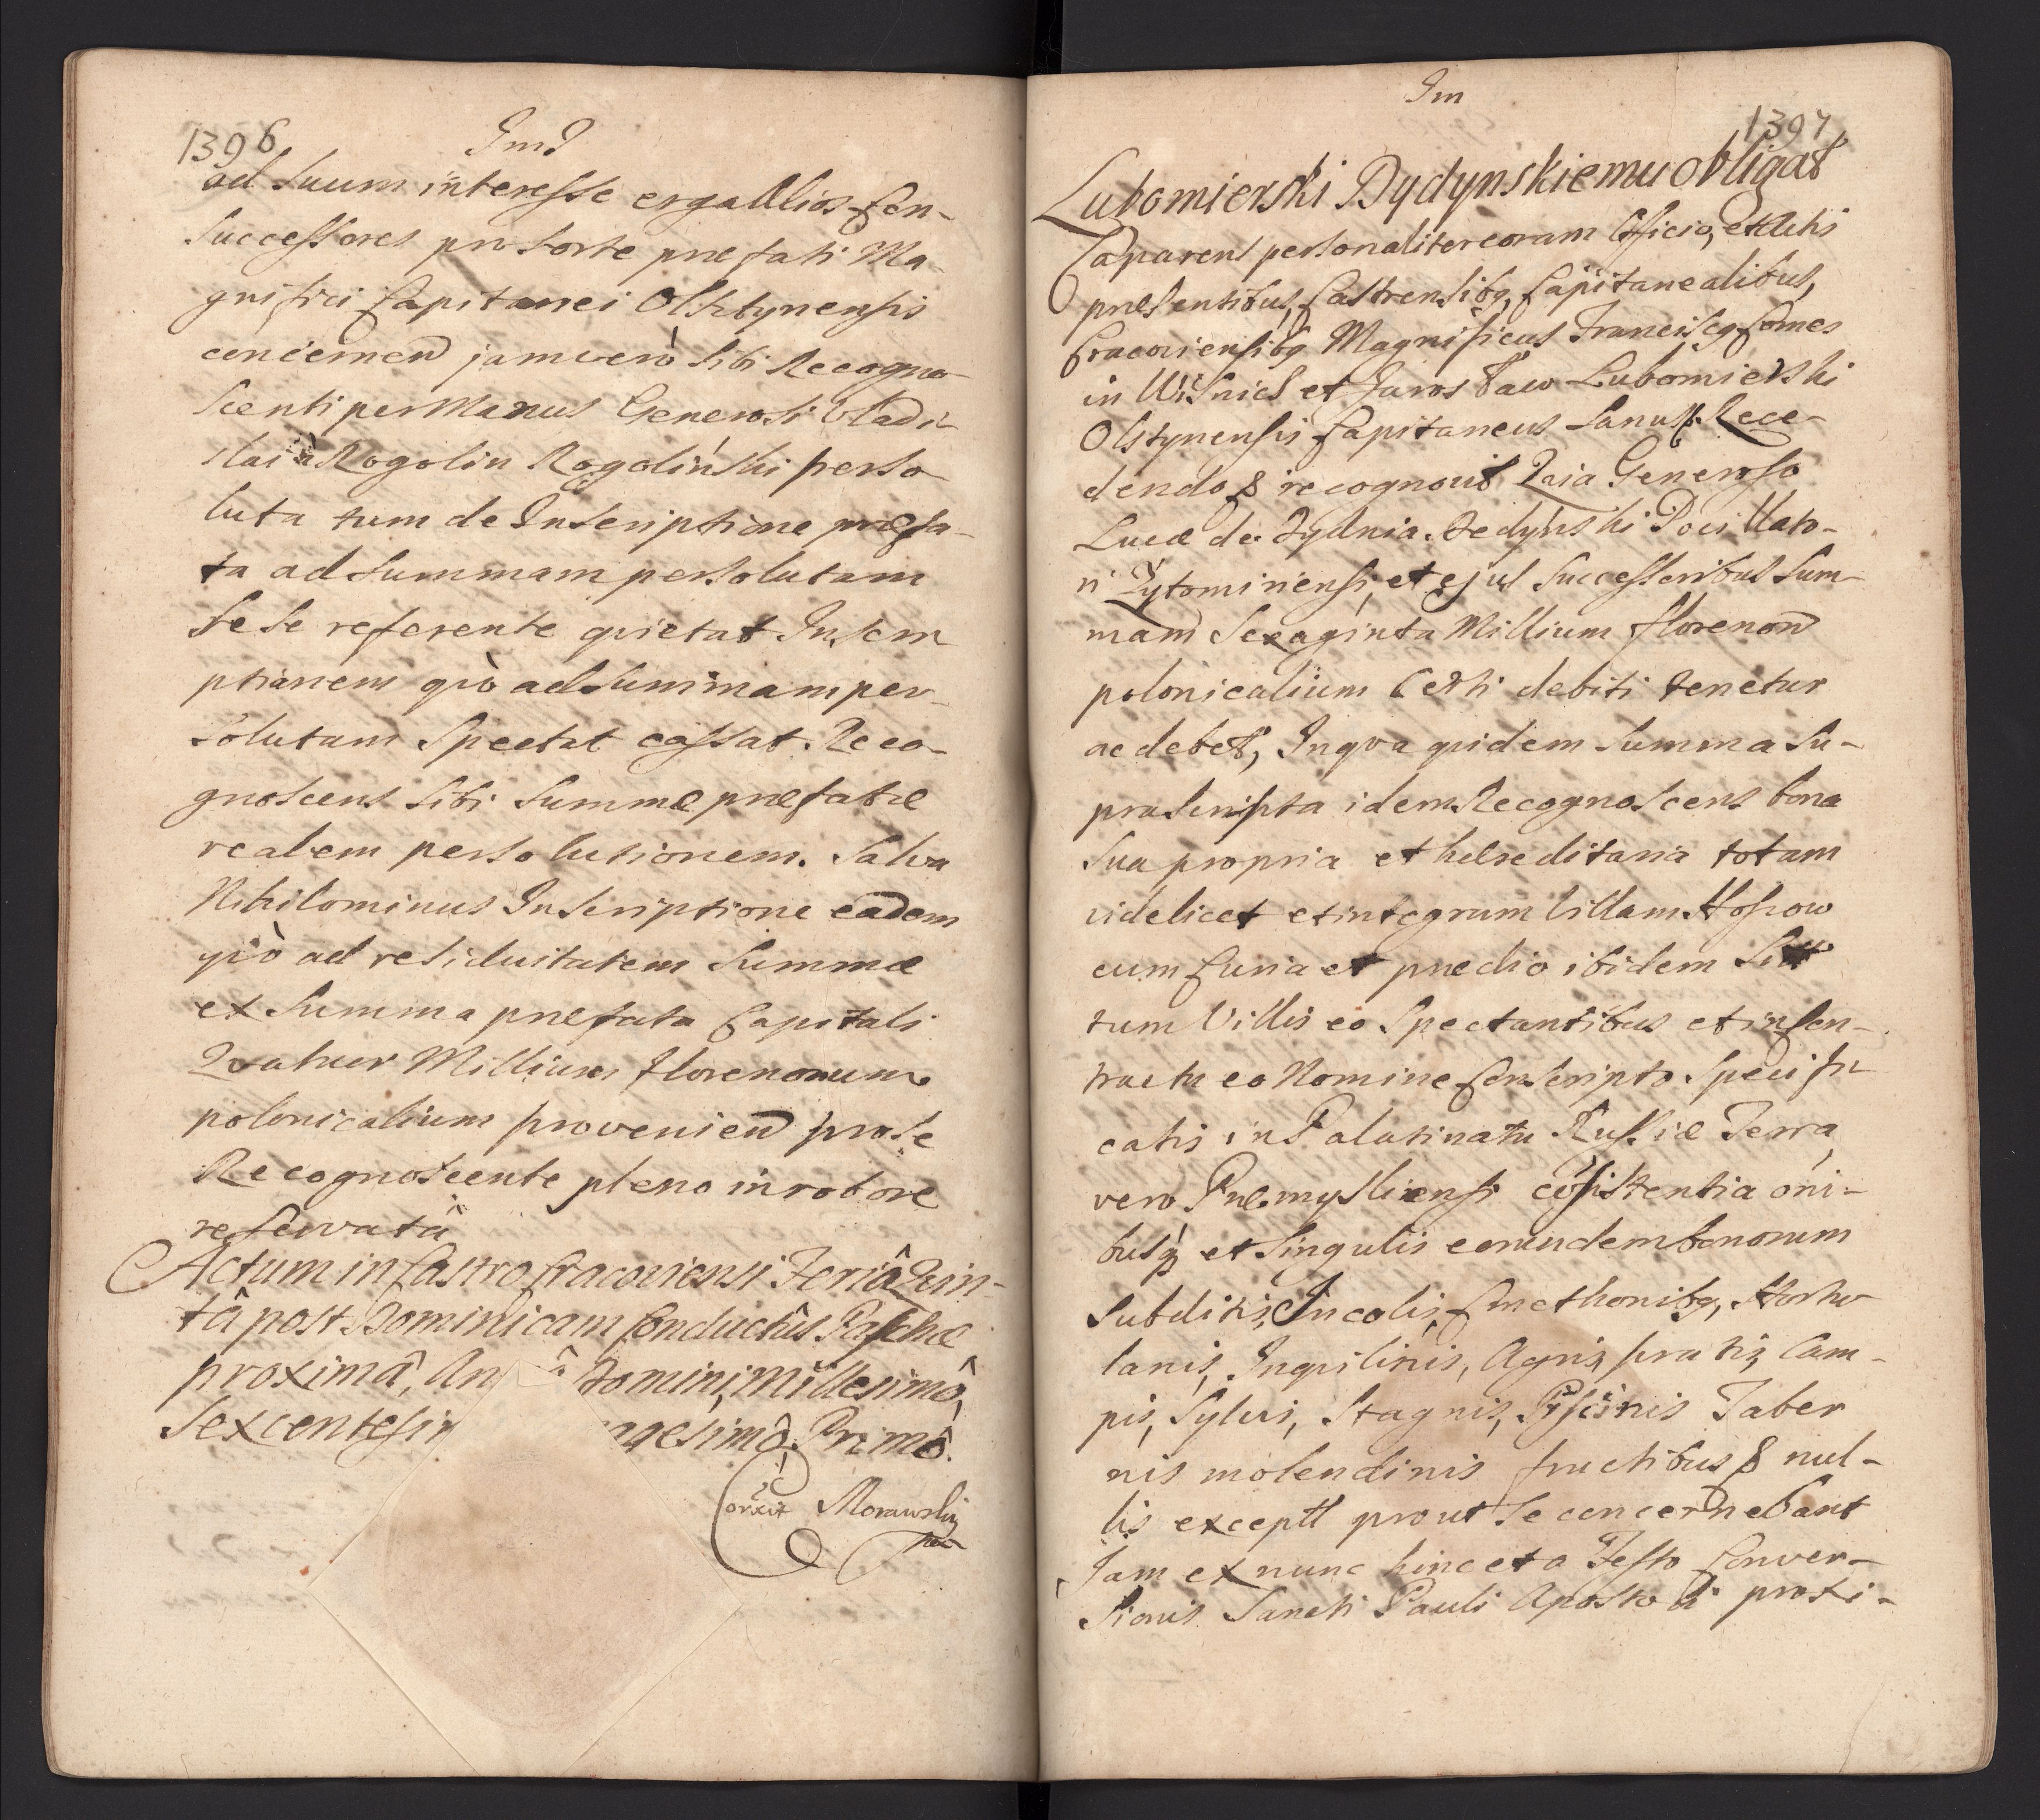 1396
ImD
ad suum interesse erga Alios Con-
successores pro sorte præfati Ma-
gnifici Capitanei Olsztynensis
concernen jam verò sibi Recogno-
scenti per Manus Generosi Vladi-
slai à Rogolin Rogoliński perso-
luta tum de Inscriptione præfa-
ta ad summam persolutam
se se referente quietat Inscri-
ptionem qvò ad summam per-
solutam Spectat cassat. Reco-
gnoscens sibi summæ præfatæ
realem persolutionem. Salva
Nihilominus Inscriptione eadem
qvò ad residuitatem summæ
ex summa præfata Capitali
Qvatuor Millium florenorum
polonicalium provenien pro se
Recognoscente pleno in robore
reservatâ
Actum in Castro Cracoviensi Feriâ Qvin-
tâ post Dominicam Conductûs Paschæ
proximâ, An Domini, Millesimô,
Sexcentesim agesimô, Primô.
Corrixit Morawsky
Im
1397
Lubomierski Dydynskiemu obligat
Comparens personaliter coram Officio, et Actis
præsentibus, Castrensibq, Capitanealibus,
Cracoviensibq Magnificus Franciscq Comes
in Wisnicz et Jarosław Lubomierski
Olstynensis Capitaneus Sanus &. Rece-
dendo & recognovit Qvia Generoso
Lucæ de Dydnia Dedynski Pocillato-
ri Zytomiriensi, et ejus Successoribus Sum-
mam Sexaginta Millium florenorum
polonicalium Certi debiti tenetur
ac debet, In qva qvidem summa su-
prascripta idem Recognoscens bona
sua propria et hæreditaria totam
videlicet et integrum Villam
cum Curia et prædio ibidem
tum Villis eo Spectantibus et in Con-
tractu eo Nomine Conscripto Specifi-
catis in Palatinatu Russiæ Terra
vero Præmysliensi cosistentia oni-
busq et singulis eorundem bonorum
Subditis, Incolis, Cmethonibq, Hortu-
lanis, Inqvilinis, Agris, pratis, Cam-
pis, Sylvis, Stagnis, Piscinis Taber
nis molendinis fructibus & nul-
lis exceptt prout se concernebant
Jam ex nunc hinc et a Festo Conver-
sionis Sancti Pauli Apostoli proxi-